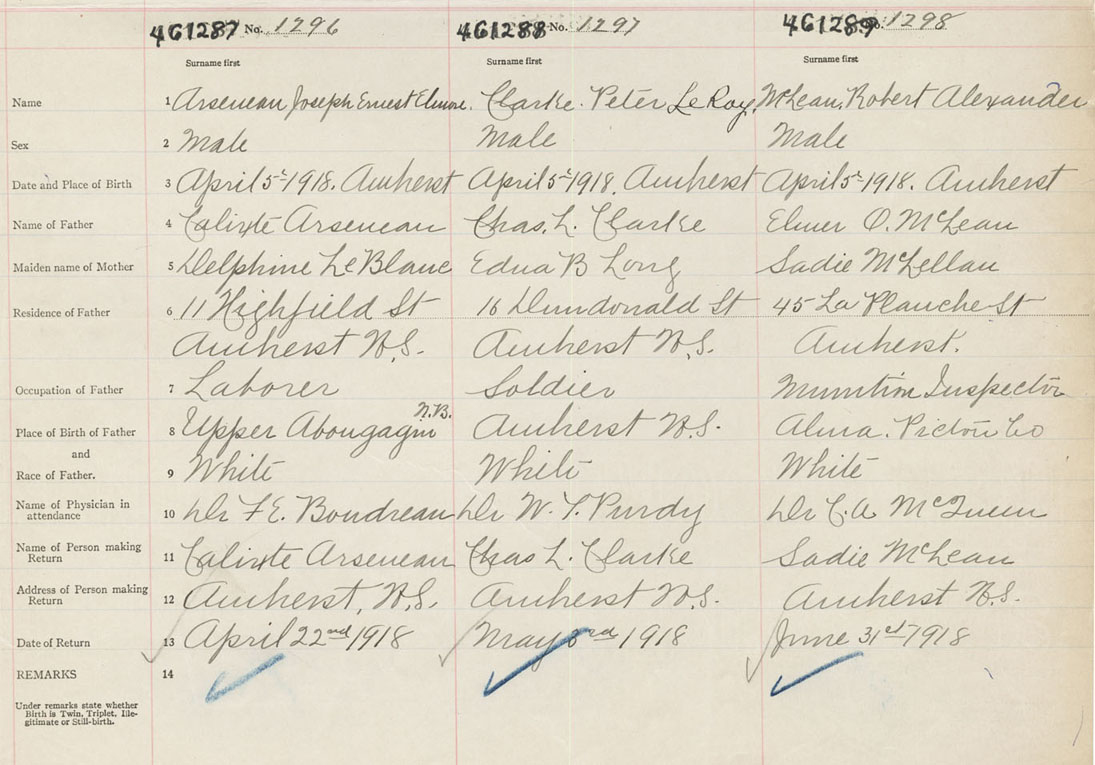 461287 No. 1296 461288 No. 1297 461289 No. 1298
Surname first Surname first Surname first
Name 1 Arseneau Joseph Ernest Elmore. Clarke. Peter LeRoy. McLean, Robert Alexander
Sex 2 Male Male Male
Date and Place of Birth 3 April 5th 1918. Amherst April 5th 1918. Amherst April 5th 1918. Amherst
Name of Father 4 Calixte Arseneau Chas. L. Clarke Elmer O. McLean
Maiden name of Mother 5 Delphine LeBlanc Edna B Long Sadie McLellan
Residence of Father 6 11 Highfield St 16 Dundonald St 45 La Planche St
Amherst N.S. Amherst N.S. Amherst.
Occupation of Father 7 Laborer Soldier Munition Inspector
N.B.
Place of Birth of Father 8 Upper Abougagin Amherst N.S. Alma. Pictou Co
and
Race of Father. 9 White White White
Name of Physician in
attendance 10 Dr F. E. Boudreau Dr W. T. Purdy Dr C. A. McQueen
Name of Person making
Return 11 Calixte Arseneau Chas L. Clarke Sadie McLean
Address of Person making
Return 12 Amherst, N.S. Amherst N.S. Amherst N.S.
Date of Return 13 April 22nd 1918 May 3rd 1918 June 31st 1918
REMARKS 14
Under remarks state whether
Birth is Twin, Triplet, Ille-
gitimate or Still-birth.